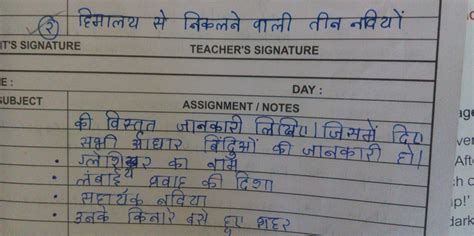 ② हिमालय से निकलने वाली तीन नदियों
IT'S SIGNATURE TEACHER'S SIGNATURE
E : DAY :
SUBJECT ASSIGNMENT / NOTES
की विस्तृत जानकारी लिखिए। जिसमें दिए
सभी आधार बिंदुओं की जानकारी हो।
• ग्लेशियर का नाम
• लंबाई व प्रवाह की दिशा
• सहायक नदिया
• उनके किनारे बसे हुए शहर
age
ver
Afte
:h c
ıp!'
dark